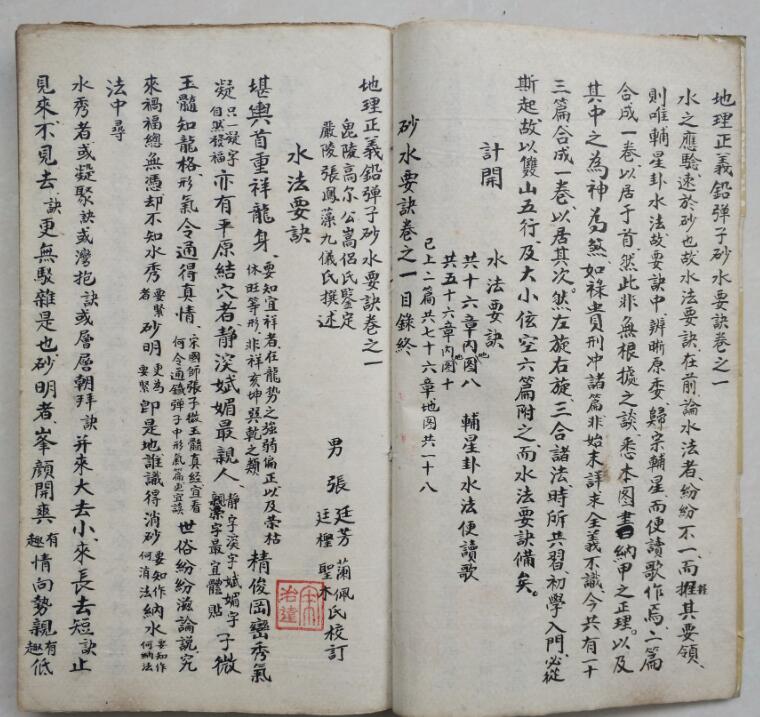 地理正義鉛彈子砂水要訣卷之一
水之應驗速於砂也故水法要訣在前論水法者紛紛不一而握其要領
則唯輔星卦水法故要訣中辨晰原委歸宗輔星而便讀歌作焉二篇
合成一卷以居于首然此非無根據之談悉本图書納甲之正理以及
其中之為神為煞如祿貴刑冲諸篇非始末詳求全義不識今共有一十
三篇合成一卷以居其次然左旋右旋三合諸法時所共習初學入門必從
斯起故以雙山五行及大小伭空六篇附之而水法要訣備矣
計開
水法要訣
共十六章内图八
輔星卦水法便讀歌
共五十六章内图十
已上二篇共七十六章地图共一十八
砂水要訣卷之一目錄終
地理正義鉛彈子砂水要訣卷之一
毘陵高尔公嵩侶氏鑒定
嚴陵張鳳藻九儀氏撰述
男張廷芳蘭佩氏
廷樫聖木氏校訂
水法要訣
堪輿首重祥龍身要知宜祥者在龍勢之强弱偏正以及荣枯休旺等形非祥亥坤巽乾之類精俊岡巒秀氣
凝只一凝字自然發福亦有平原結穴者靜深斌媚最親人靜字深字斌媚字親字最宜體貼子微
玉髓知龍格形氣令通得真情宋國師張子微玉髓真經宜看何令通鐵彈子中形氣篇更宜讀世俗紛紛滋論說究
來禍福總無憑却不知水秀者要緊砂明更為要緊即是地誰識得消砂要知作何消法納水要知作何納法
法中尋
水秀者或凝聚訣或灣抱訣或層層朝拜訣并來大去小來長去短訣止
見來不見去訣更無駁雜是也砂明者峯顔開爽有趣情向勢親有趣低